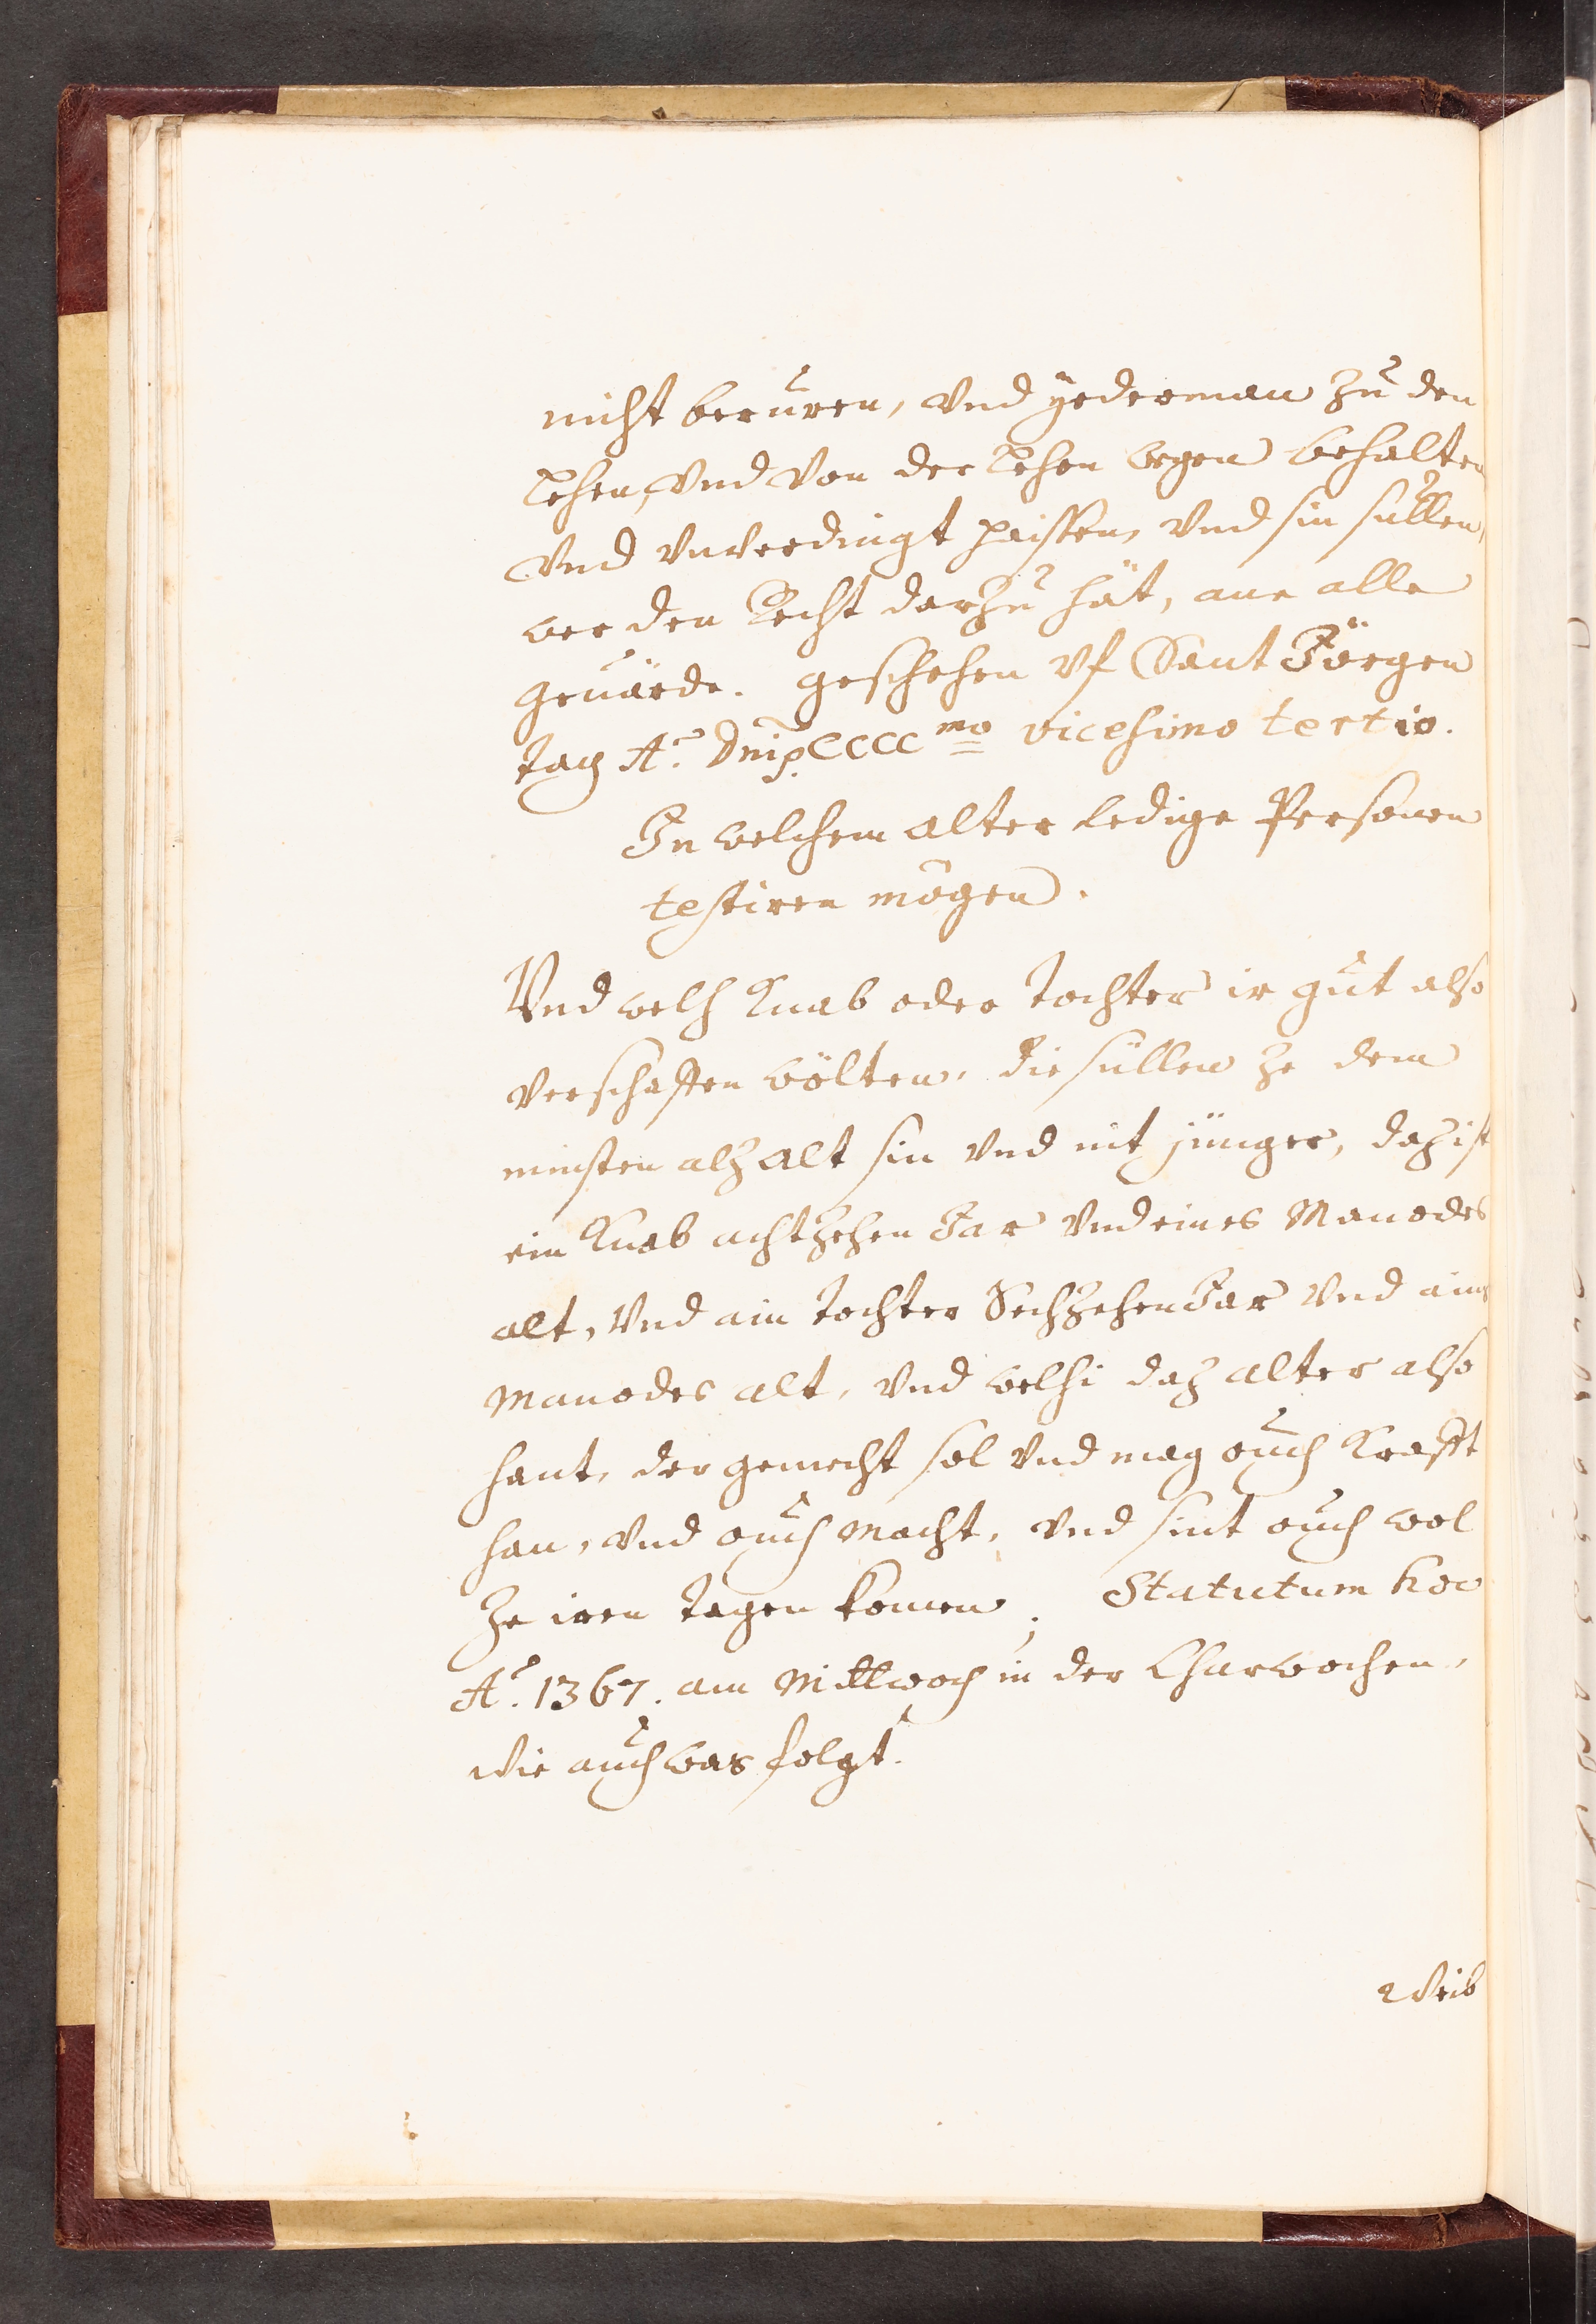 nicht berüren, vnd yederman zu den
Lehen, vnd von der Lehen wegen behalten
vnd vnverdingt haissen, vnd sin süllen,
wer den Recht darzu hät, ane alle
geuärde. geschehen vf Sant Jörgen
tag Aº. Dnj. CCCC mo vicesimo tertio.
In welchem alter ledige Personen
testiren mögen.
Vnd welch Knab oder tochter ir gut also
verschaffen wölten, die süllen ze dem
minsten alz alt sin vnd nit jünger, daz ist
ein Knab achtzehen Jar vnd eines Manodes
alt, vnd ain tochter Sechzehen Jar vnd ains
manodes alt, vnd welhi daz alter also
hant, der gemecht sol vnd mag ouch Krafft
han, vnd ouch macht, vnd sint ouch wol
ze iren tagen komen. Statutum hoc
Aº. 1367. am Mittwoch in der Charwochen,
wie auch was folgt.
Weib